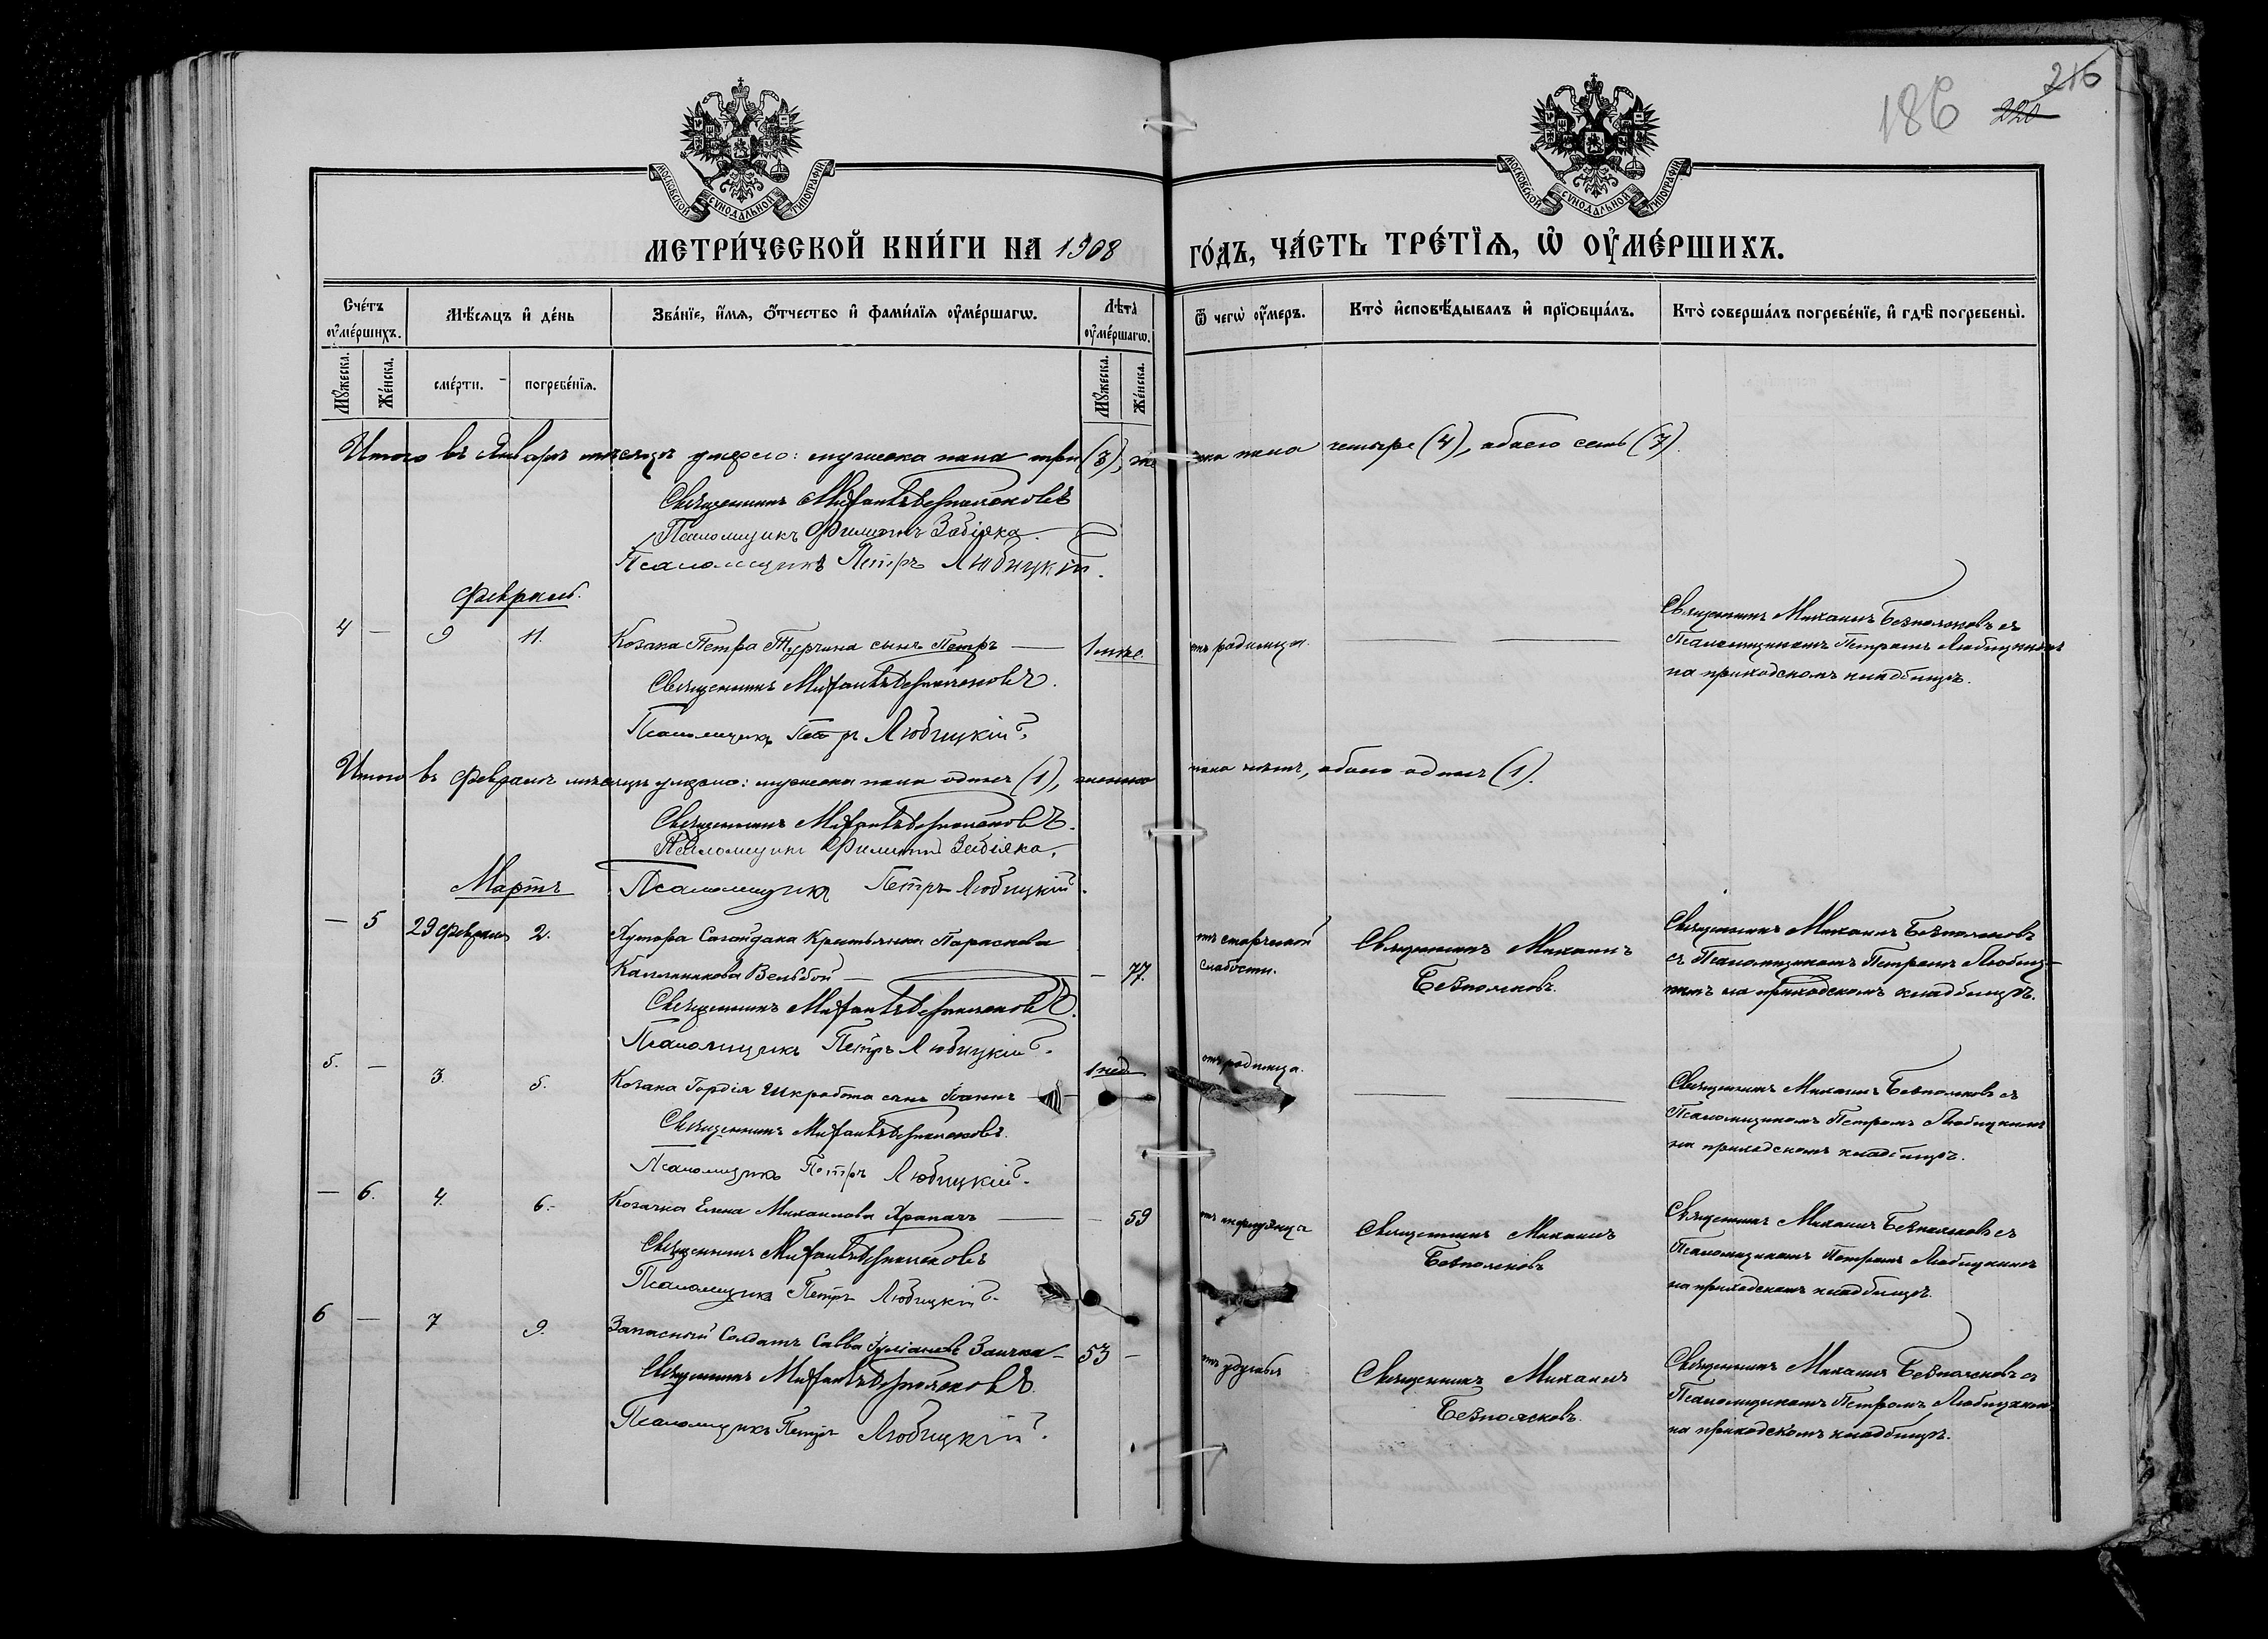 186
216
220
МОСКОВСКОЙ СѴНОДАЛЬНОЙ ТИПОГРАФІИ
МОСКОВСКОЙ СѴНОДАЛЬНОЙ ТИПОГРАФІИ
МЕТРИ́ЧЕСКОЙ КНИ́ГИ НА 1908 ГО́ДЪ, ЧА́СТЬ ТРЕ́ТЇѦ, Ѡ҆ ОУ҆МЕ́РШИХЪ.
Сче́тъ оу҆ме́ршихъ.
Мѣ́сѧцъ и҆ де́нь
Зва́нїе, и҆́мѧ, ѻ҆́тчество и҆ фами́лїѧ оу҆ме́ршагѡ.
Лѣта̀ оу҆ме́ршагѡ.
Ѿ чегѡ̀ оу҆́меръ.
Кто̀ и҆сповѣ́дывалъ и҆ прїѡбща́лъ.
Кто̀ соверша́лъ погребе́нїе, и҆ гдѣ̀ погребены̀.
Мꙋ́жеска.
Же́нска.
сме́рти.
погребе́нїѧ.
Мꙋ́жеска.
Же́нска.
Итого въ Январѣ мѣсяцѣ умерло: мужеска пола три (3), женска пола четыре (4), обоего семь (7).
Священникъ Михаилъ Безпоясковъ
Псаломщикъ Филиппъ Забіяка
Псаломщикъ Петръ Любицкій.
Февраль.
4 — 9 11. Козака Петра Турчина сынъ Петръ — 1 мѣс. отъ родимца. — — Священникъ Михаилъ Безпоясковъ съ
Псаломщикомъ Петромъ Любицкимъ
на приходскомъ кладбищѣ.
Священникъ Михаилъ Безпоясковъ.
Псаломщикъ Петръ Любицкій.
Итого въ Февралѣ мѣсяцѣ умерло: мужеска пола одинъ (1), женска пола нѣтъ, обоего одинъ (1).
Священникъ Михаилъ Безпоясковъ.
Псаломщикъ Филиппъ Забіяка.
Псаломщикъ Петръ Любицкій.
Мартъ
— 5 29 Февраля 2. Хутора Сагайдака Крестьянка Параскева
— 77. отъ старческой
слабости.
Священникъ Михаилъ
Безпоясковъ.
Священникъ Михаилъ Безпоясковъ
съ Псаломщикомъ Петромъ Любиц-
кимъ на приходскомъ кладбищѣ.
Священникъ Михаилъ Безпоясковъ.
Псаломщикъ Петръ Любицкій.
5. — 3. 5. Козака Гордія Шкробота сынъ Іоаннъ — 1 нед. отъ родимца. — — Священникъ Михаилъ Безпоясковъ съ
Псаломщикомъ Петромъ Любицкимъ
на приходскомъ кладбищѣ.
Священникъ Михаилъ Безпоясковъ.
Псаломщикъ Петръ Любицкій.
— 6. 4. 6. Козачка Елена Михаилова Храпачъ — — 59
Священникъ Михаилъ
Безпоясковъ
Священникъ Михаилъ Безпоясковъ съ
Псаломщикомъ Петромъ Любицкимъ
на приходскомъ кладбищѣ.
Священникъ Михаилъ Безпоясковъ
Псаломщикъ Петръ Любицкій.
6 — 7 9. Запасный Солдатъ Савва Іуліановъ Заичка — 53 — отъ удушья
Священникъ Михаилъ
Безпоясковъ.
Священникъ Михаилъ Безпоясковъ съ
Псаломщикомъ Петромъ Любицкимъ
на приходскомъ кладбищѣ.
Священникъ Михаилъ Безпоясковъ.
Псаломщикъ Петръ Любицкій.